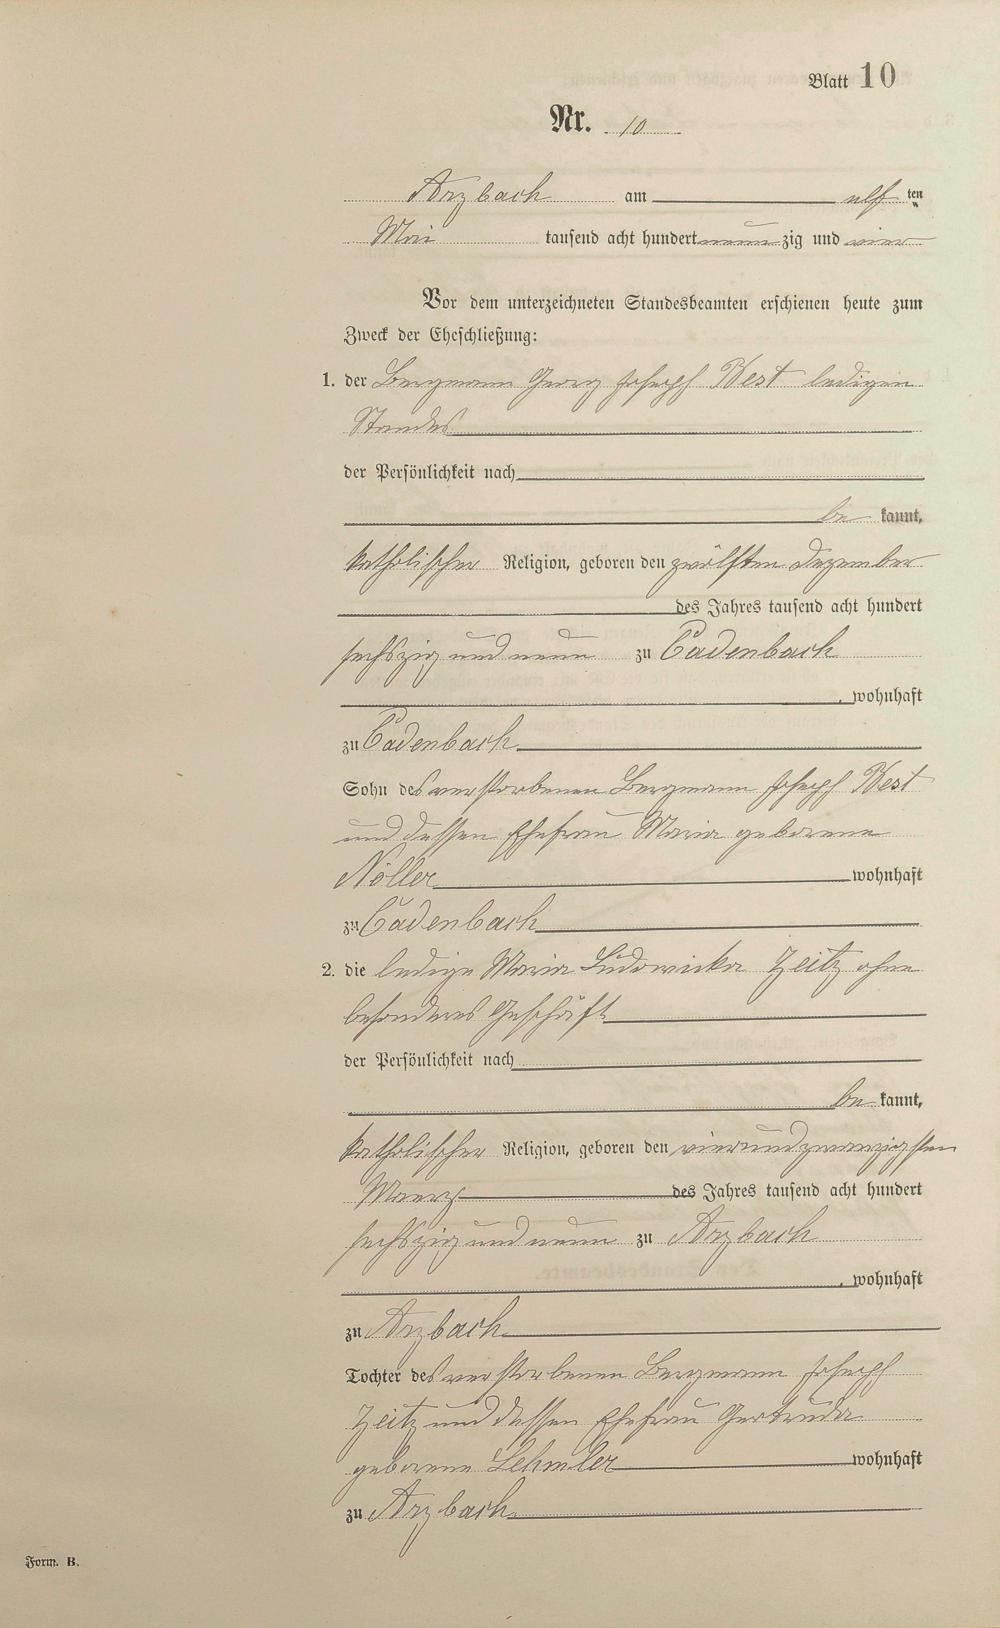 Blatt 10
Nr. 10
Arzbach am elf ten
Mai tausend acht hundert neun zig und vier
Vor dem unterzeichneten Standesbeamten erschienen heute zum
Zweck der Eheschließung:
1. der Bergmann Georg Joseph Best ledigen
Standes
der Persönlichkeit nach
be kannt,
katholischer Religion, geboren den zwölften Dezember
des Jahres tausend acht hundert
sechszig und neun zu Cadenbach
, wohnhaft
zu Cadenbach
Sohn des verstorbenen Bergmann Joseph Best
und dessen Ehefrau Maria geborene
Nöller wohnhaft
zu Cadenbach
2. die ledige Maria Ludowicka Zeitz ohne
besonderes Geschäft
der Persönlichkeit nach
be kannt,
katholischer Religion, geboren den vierundzwanzigsten
Maerz des Jahres tausend acht hundert
sechszig und neun zu Arzbach
, wohnhaft
zu Arzbach
Tochter des verstorbenen Bergmann Joseph
Zeitz und dessen Ehefrau Gertruda
geborene Lehmler wohnhaft
zu Arzbach
Form. B.